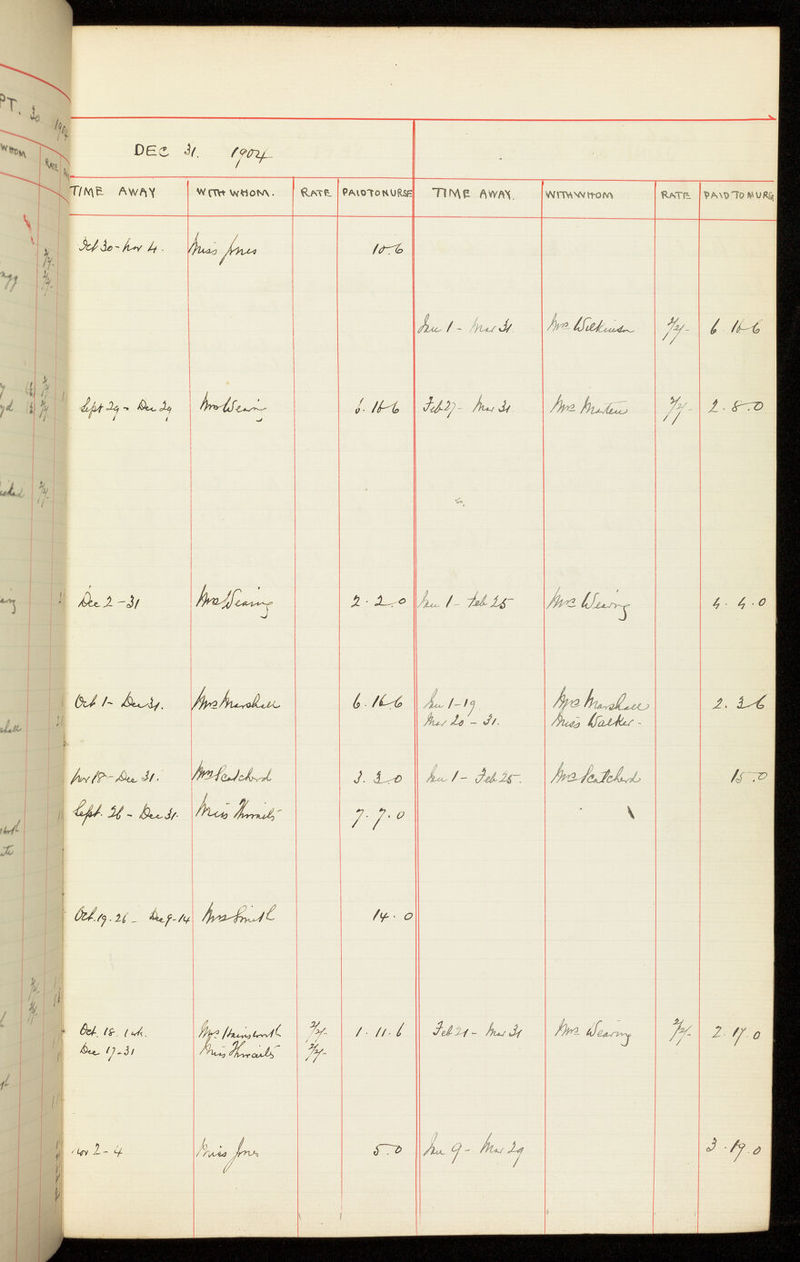 PT. 30 1904
WHOM RATE
DEC 31. 1904
TIME AWAY WITH WHOM. RATE PAID TO NURSE TIME AWAY. WITH WHOM RATE PAID TO NURSE
Oct 30 - Nov 4. Miss Jones 10.6
Jan 1 - Mar 31 Mrs Wilkinson 2/2/- 6 16 6
Sept 29 - Dec 29 Mrs Wearing 6. 16 6 Feb 27 - Mar 31 Mrs 2/2/- 2. 8. 0
Dec 2 - 31 Mrs Wearing 2. 2. 0 Jan 1 - Feb 25 Mrs Wearing 4. 4. 0
Oct 1 - Dec 31. Mrs Marshall 6. 16 6 Jan 1 - 19 Mrs Marshall 2. 3 6
Mar 20 - 31. Miss Walker -
Nov 18 - Dec 31. Mrs Scatcherd 3. 3. 0 Jan 1 - Feb 25. Mrs Scatcherd 15. 0
Sept. 26 - Dec 31. Miss Thwaits 7. 7. 0
Oct. 19. 26 - Dec 9-14 Mrs Smith 14. 0
Oct. 18. 1 wk. Mrs Hainsworth 2/2/- 1. 11. 6 Feb 21 - Mar 31 Mrs Wearing 2/2/- 2. 17. 0
Dec 17-31 Miss Thwaits 2/2/-
Nov 2 - 4 Miss Jones 5. 0 Jan 9 - Mar 29 3. 19. 0